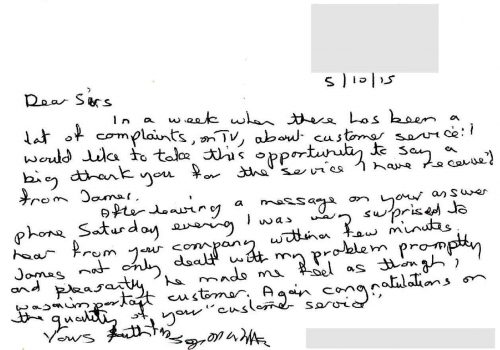 5/10/15
Dear Sirs
In a week when there has been a
lot of complaints, on TV, about customer service: I
would like to take this opportunity to say a
big thank you for the service I have received
from James.
After leaving a message on your answer
phone Saturday evening I was very surprised to
hear from your company within a few minutes
James not only dealt with my problem promptly
and pleasantly, he made me feel as though I
was an important customer. Again congratulations on
the quality of your "customer service"
Yours